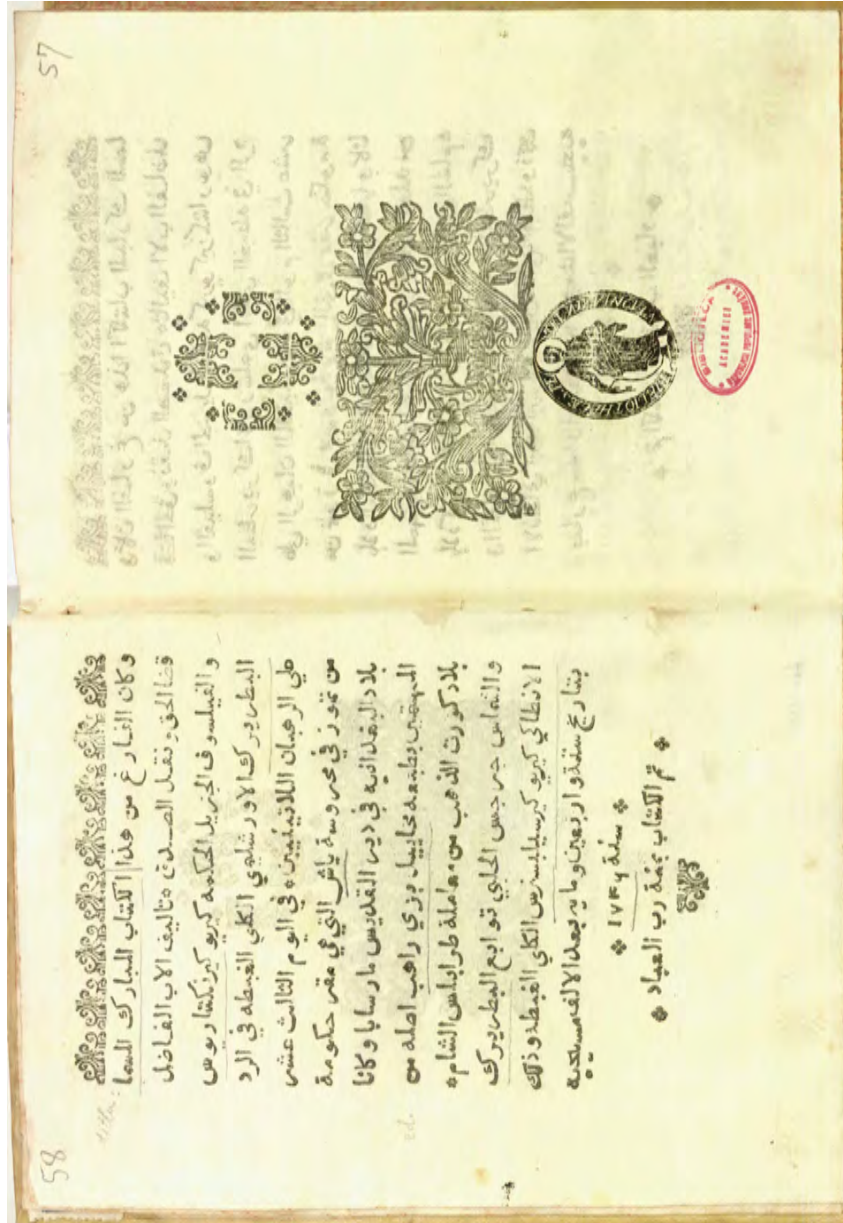 58
وكان الفارغ من هذا الكتاب المبارك المسما
قضا الحق ونقل الصدق ٭ تاليف الاب الفاضل
والفيلسوف الجزيل الحكمه كيريو كير نكتاريوس
البطريرك الاورشليمي الكلي الغبطه في الرد
علي الرهبان اللاتينيين ٭ في اليوم الثالث عشر
من تموز في محروسة ياش التي هي مقر حكومة
بلاد البغدانيه في دير القديس مار سابا وكانا
المهتمين بطبعه مخاييل بزي راهب اصله من
بلاد كورت الذهب من معاملة طرابلس الشام ٭
والشماس جرجس الحلبي توابع البطريرك
الانطاكي كيريو كير سيلبسترس الكلي الغبطة وذلك
بتاريخ ستة واربعين ومايه بعد الالف مسيحية
٭ سنة ١٧٤٦ ٭
٭ تم الكتاب بمنة رب العباد ٭
57